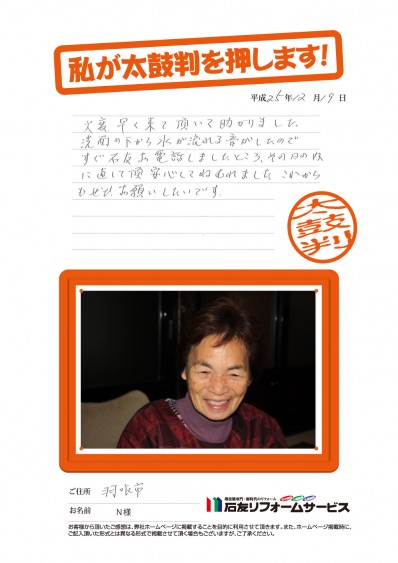 私が太鼓判を押します!
平成25年12月19日
大変早く来て頂いて助かりました
洗面の下から水が流れる音がしたので
すぐ石友お電話しましたところ、その日の内
に直して頂安心してねむれました これから
もぜひお願いしたいです
太鼓判
ご住所 羽咋市
お名前 N様
増改築専門・新時代のリフォーム
石友リフォームサービス
お客様から頂いたご感想は、弊社ホームページに掲載することを目的に利用させて頂きます。また、ホームページ掲載時に、
ご記入頂いた形式とは異なる形式で掲載させて頂く場合もございますが、ご了承ください。